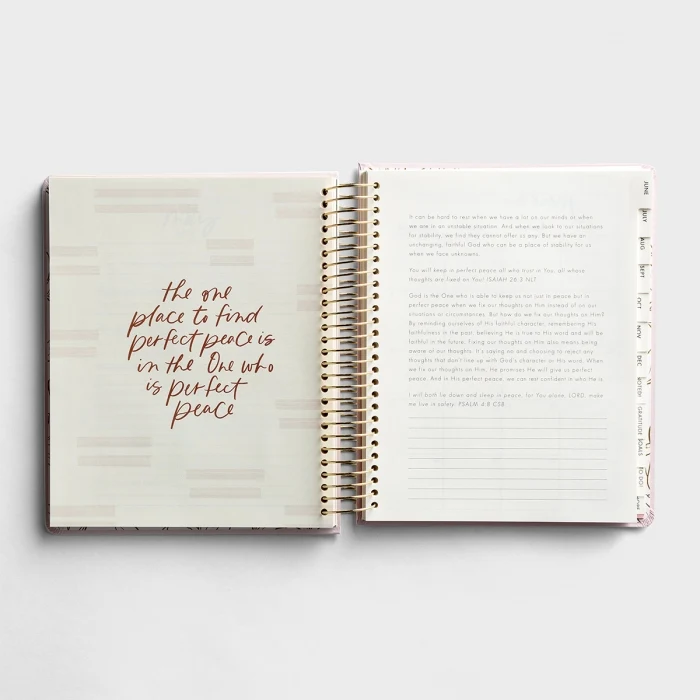 the one
place to find
perfect peace is
in the One who
is perfect
peace
It can be hard to rest when we have a lot on our minds or when
we are in an unstable situation. And when we look to our situations
for stability, we find they cannot offer us any. But we have an
unchanging, faithful God who can be a place of stability for us
when we face unknowns.
You will keep in perfect peace all who trust in You, all whose
thoughts are fixed on You! ISAIAH 26:3 NLT
God is the One who is able to keep us not just in peace but in
perfect peace when we fix our thoughts on Him instead of on our
situations or circumstances. But how do we fix our thoughts on Him?
By reminding ourselves of His faithful character, remembering His
faithfulness in the past, believing He is true to His word and will be
faithful in the future. Fixing our thoughts on Him also means being
aware of our thoughts. It's saying no and choosing to reject any
thoughts that don't line up with God's character or His word. When
we fix our thoughts on Him, He promises He will give us perfect
peace. And in His perfect peace, we can rest confident in who He is.
I will both lie down and sleep in peace, for You alone, LORD, make
me live in safety. PSALM 4:8 CSB
JUNE
JULY
AUG
SEPT
OCT
NOV
DEC
NOTES
GRATITUDE
GOALS
TO DO